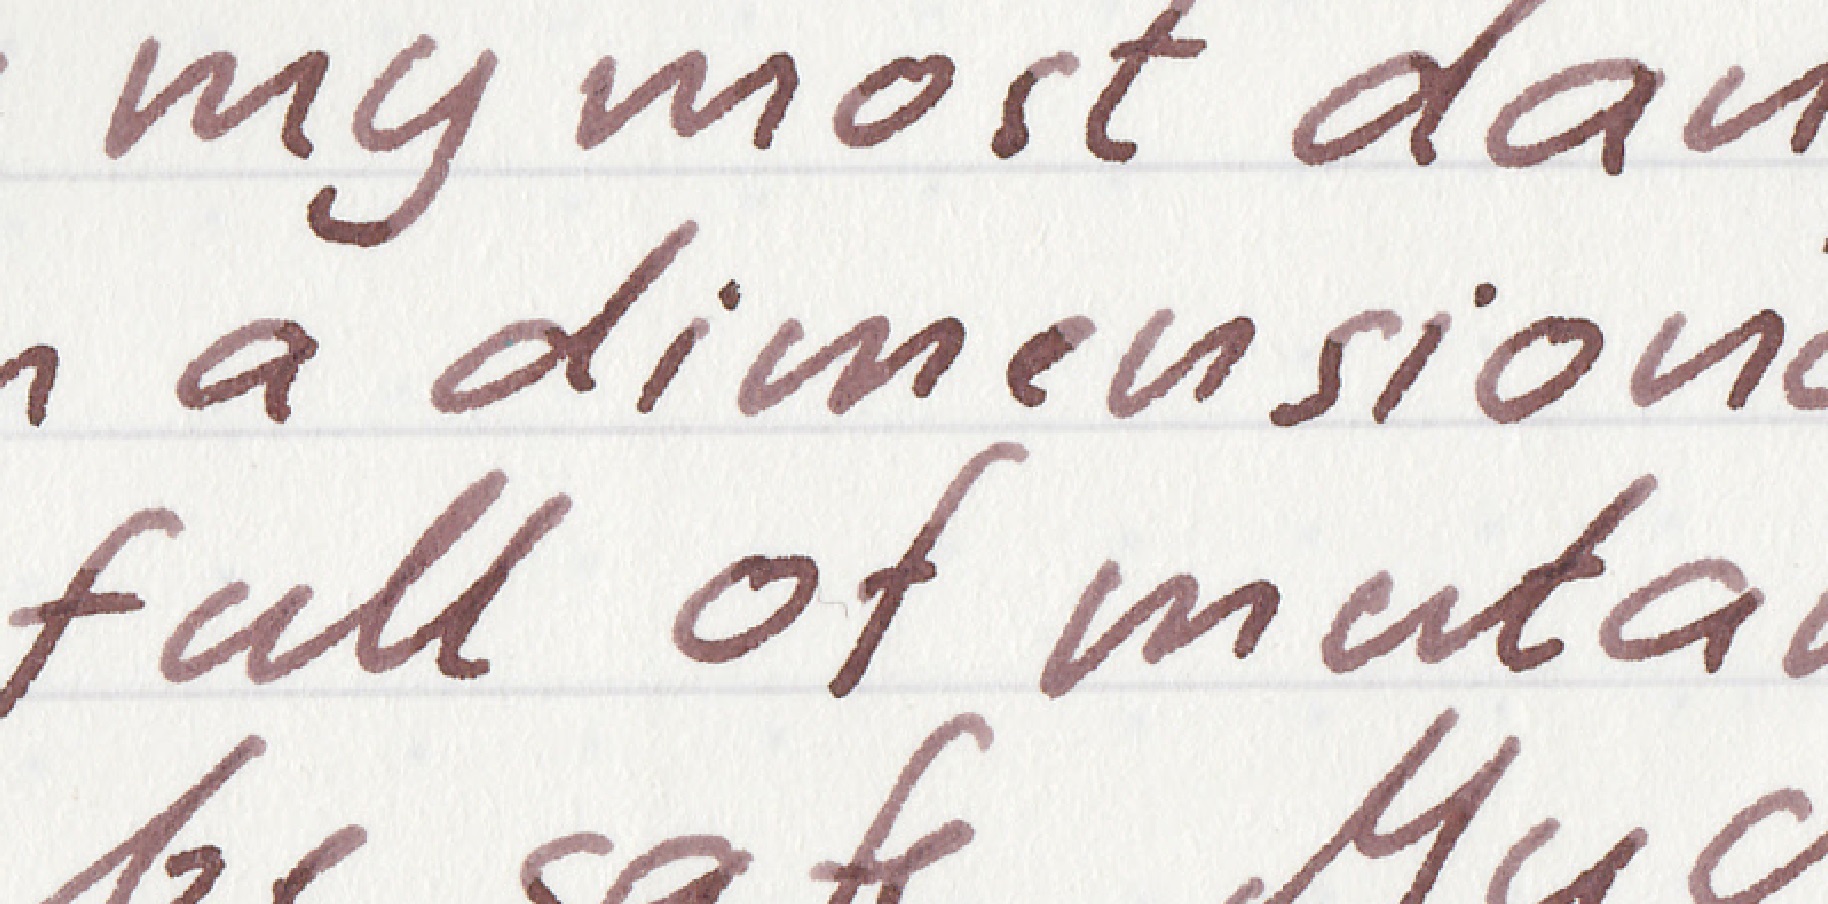 my most dan
n a dimensiona
full of mutan
be safe My